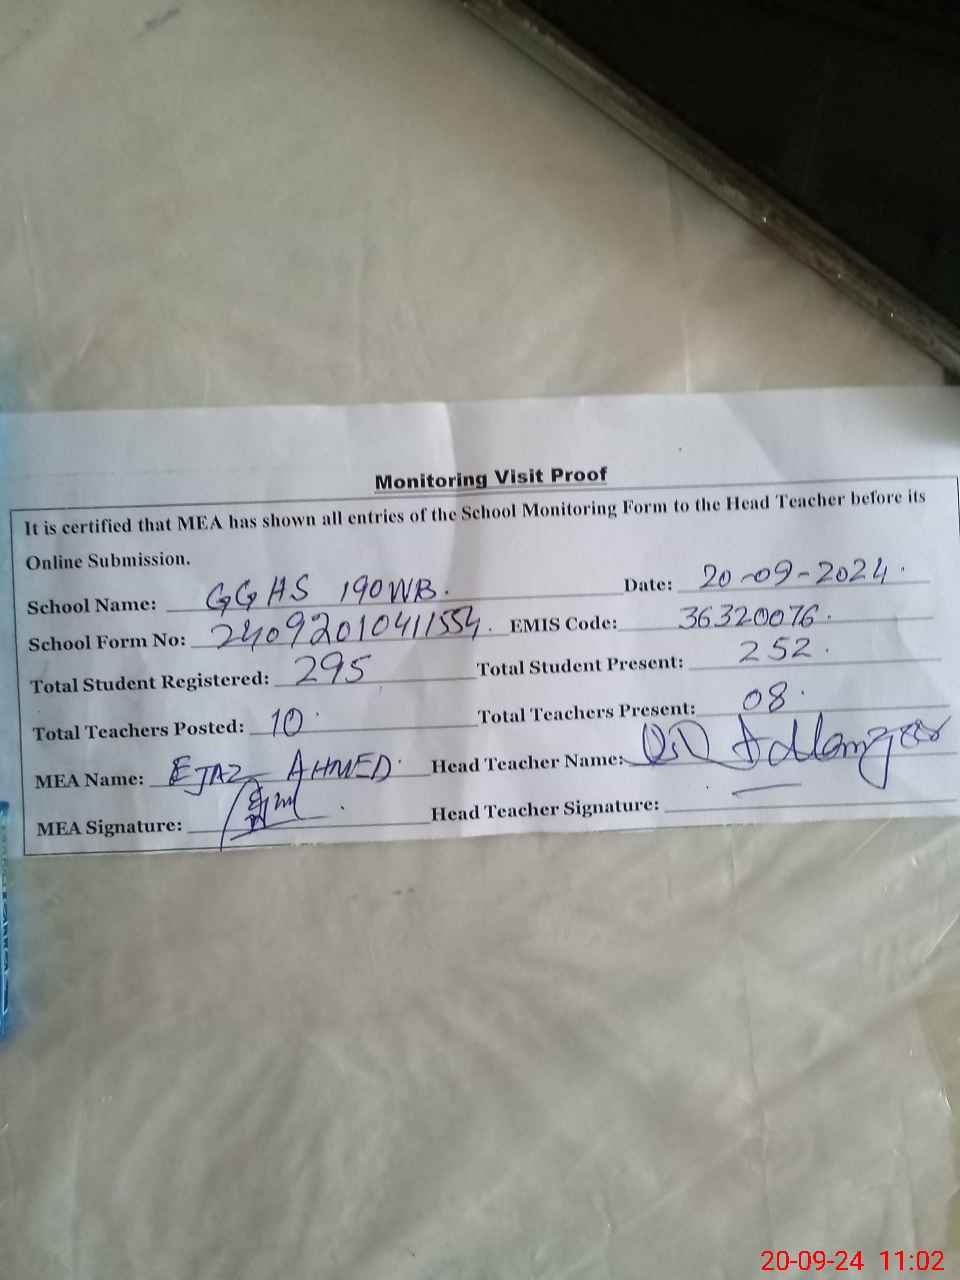 Monitoring Visit Proof
It is certified that MEA has shown all entries of the School Monitoring Form to the Head Teacher before its
Online Submission.
School Name: GGHS 190WB. Date: 20-09-2024.
School Form No: 24092010411554. EMIS Code: 36320076.
Total Student Registered: 295 Total Student Present: 252.
Total Teachers Posted: 10. Total Teachers Present: 08.
MEA Name: EJAZ AHMED. Head Teacher Name:
MEA Signature: Head Teacher Signature:
20-09-24 11:02